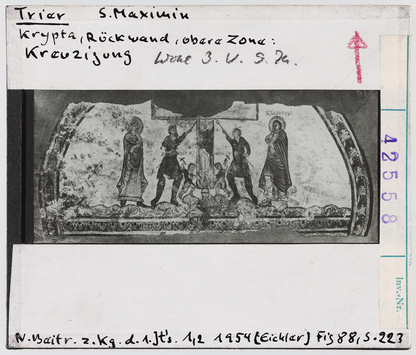 Trier S. Maximin
Krypta, Rückwand, obere Zone:
Kreuzigung
42558
Inv.-Nr.
N. Beitr. z. Kg. d. 1. Jt's. 1,2 1954 (Eichler) Fig 88, S. 223